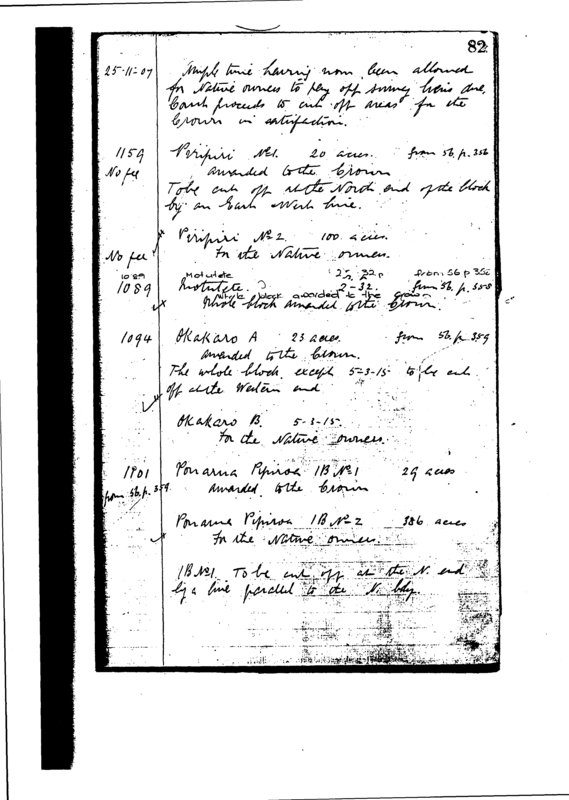 82
25-11-07 Ample time having now been allowed
for Native owners to pay off survey liens due,
Court proceeds to cut off areas for the
Crown in satisfaction.
1159 Piripiri No 1. 20 acres. from 56. p. 356
No fee awarded to the Crown
To be cut off at the North end of the block
by an East & West line.
Piripiri No 2 100 acres.
No fee For the Native owners.
1089 Motutete 2r, 32p from 56 p 358
1089 Motutete. 2-32. from 56. p. 358
whole block awarded to the crown
Whole block awarded to the Crown.
1094 Okakaro A 23 acres. from 56. p 359
awarded to the Crown.
The whole block, except 5-3-15 to be cut
off at the Western end
Okakaro B. 5-3-15.
For the Native owners.
1901 Pipiroa 1B No 1 29 acres
from 56. p. 359 awarded to the Crown
Pipiroa 1B No 2 386 acres
For the Native owners.
1B No 1. To be cut off at the N. end
by a line parallel to the N. bdy.